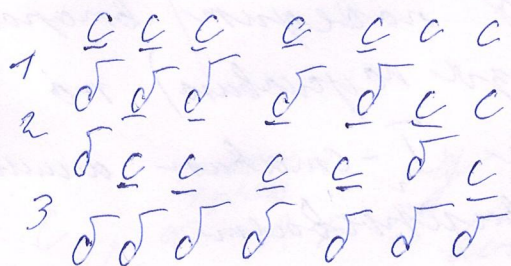 с с с с с с с
1
б б б б б с с
2
б с с с с б с
3
б б б б б б б